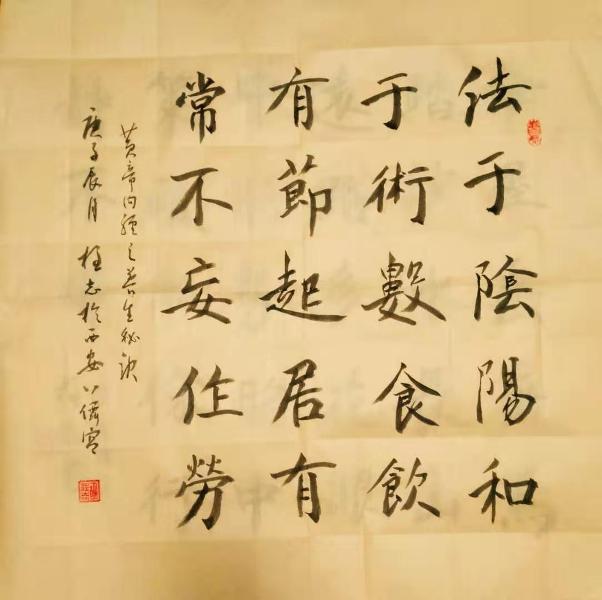 法于陰陽和
于術數食飲
有節起居有
常不妄作勞
黄帝内經之養生秘訣
庚子辰月 志於西安八僊宮